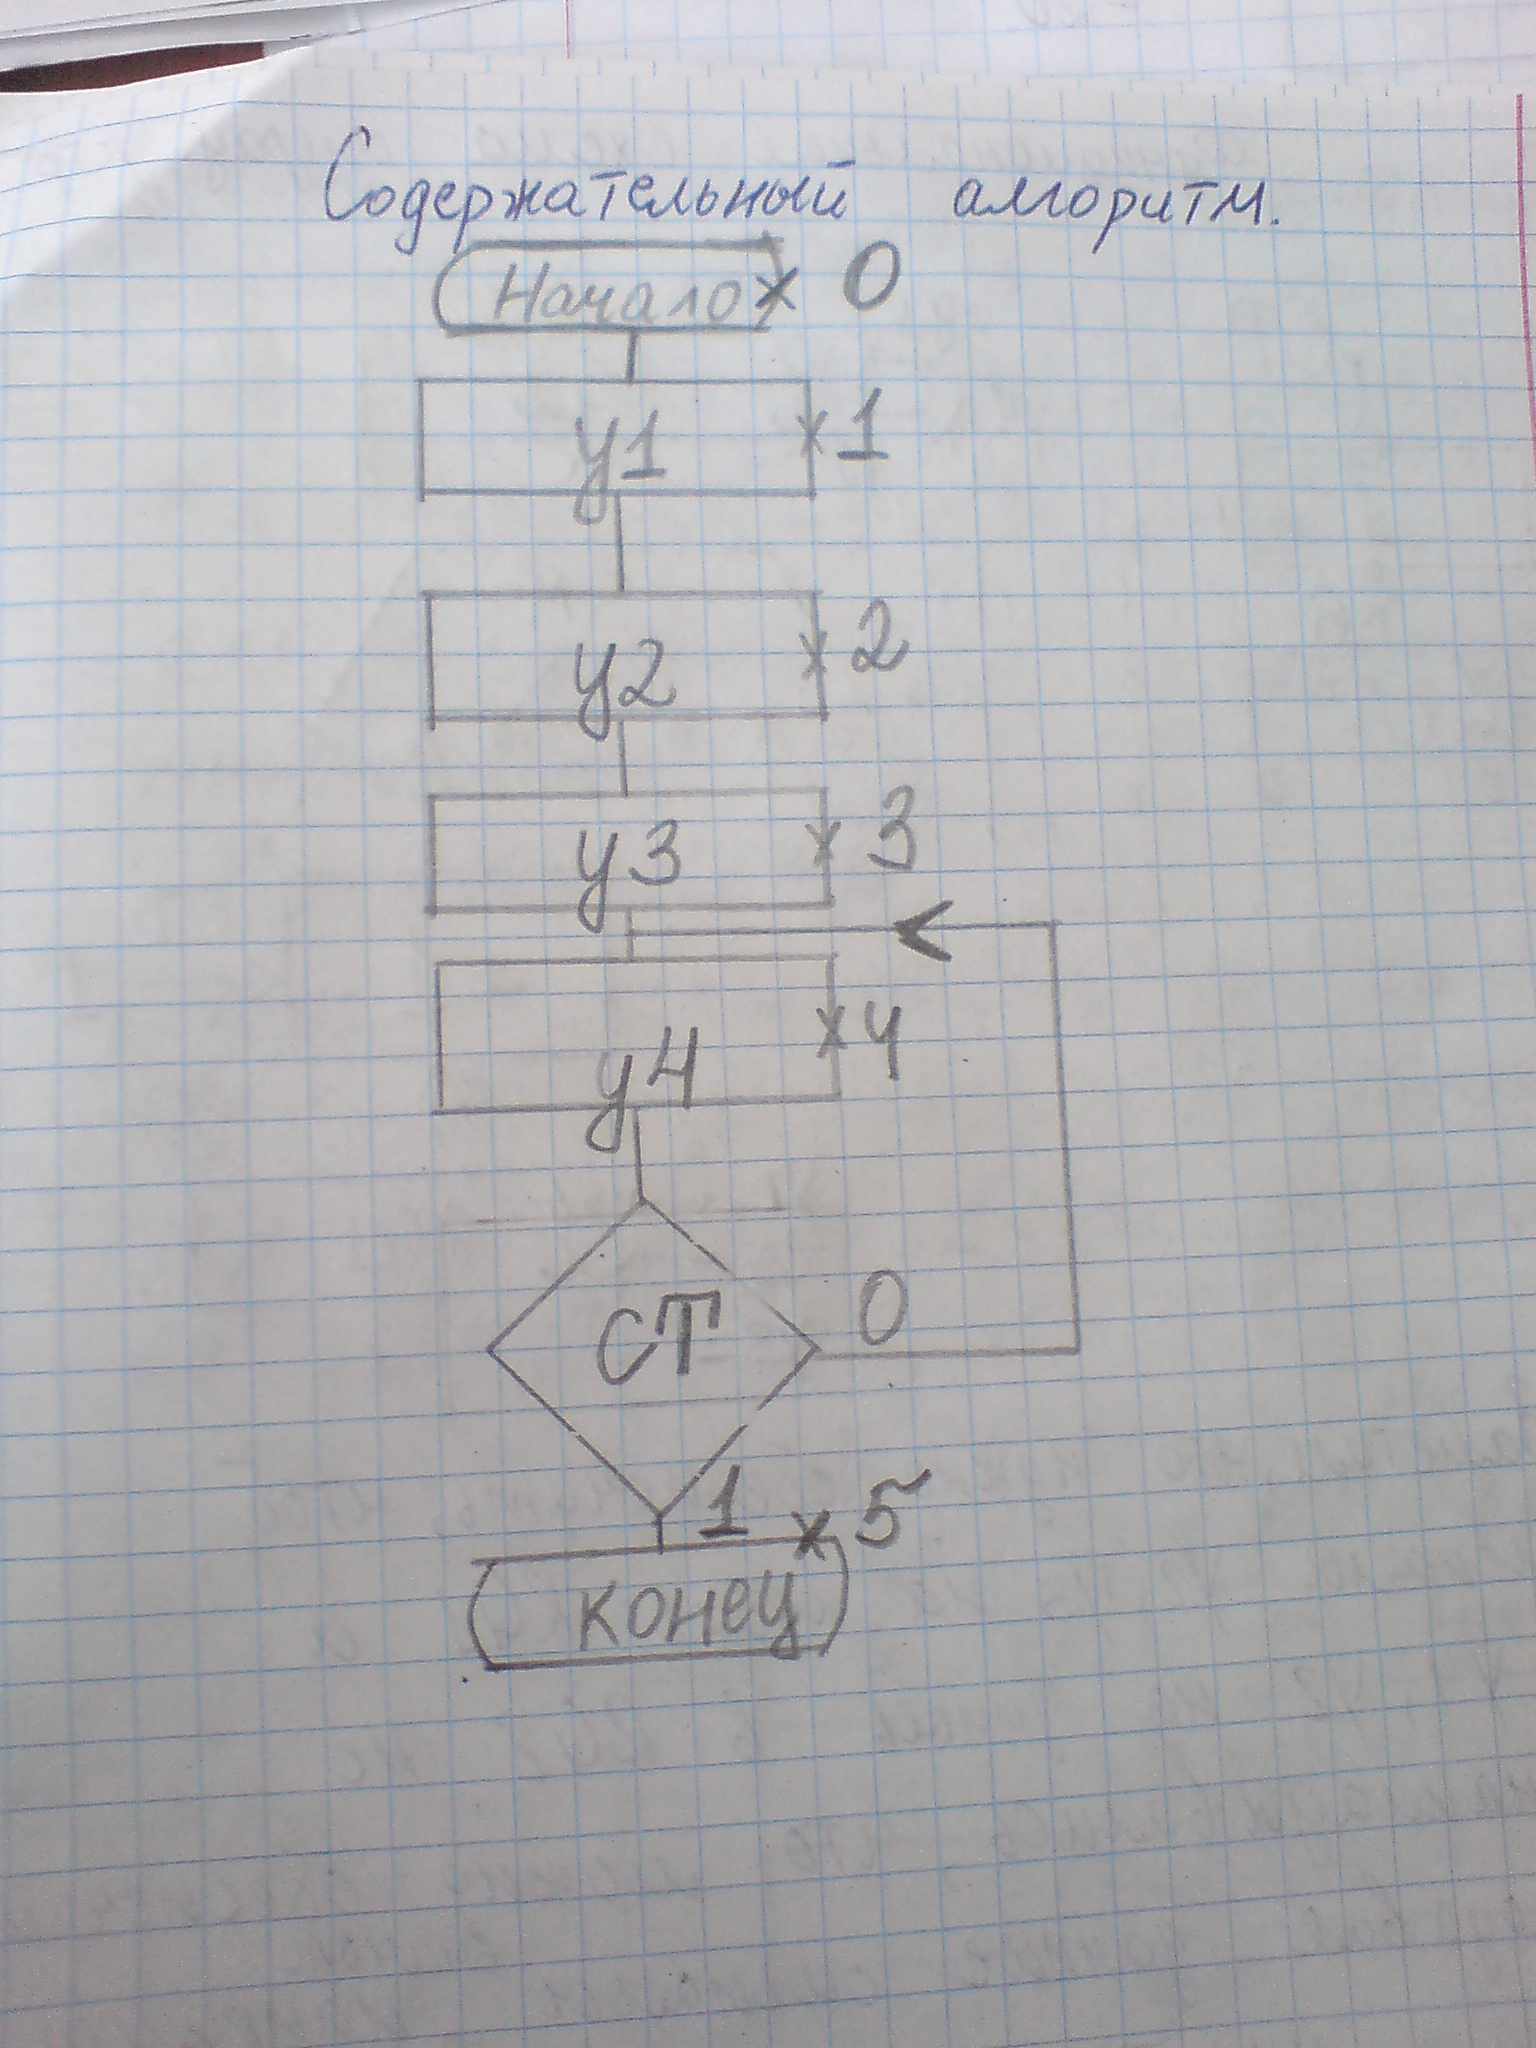 Содержательный алгоритм.
Начало × 0
y1 × 1
y2 × 2
y3 × 3
y4 × 4
СТ 0
1 × 5
конец